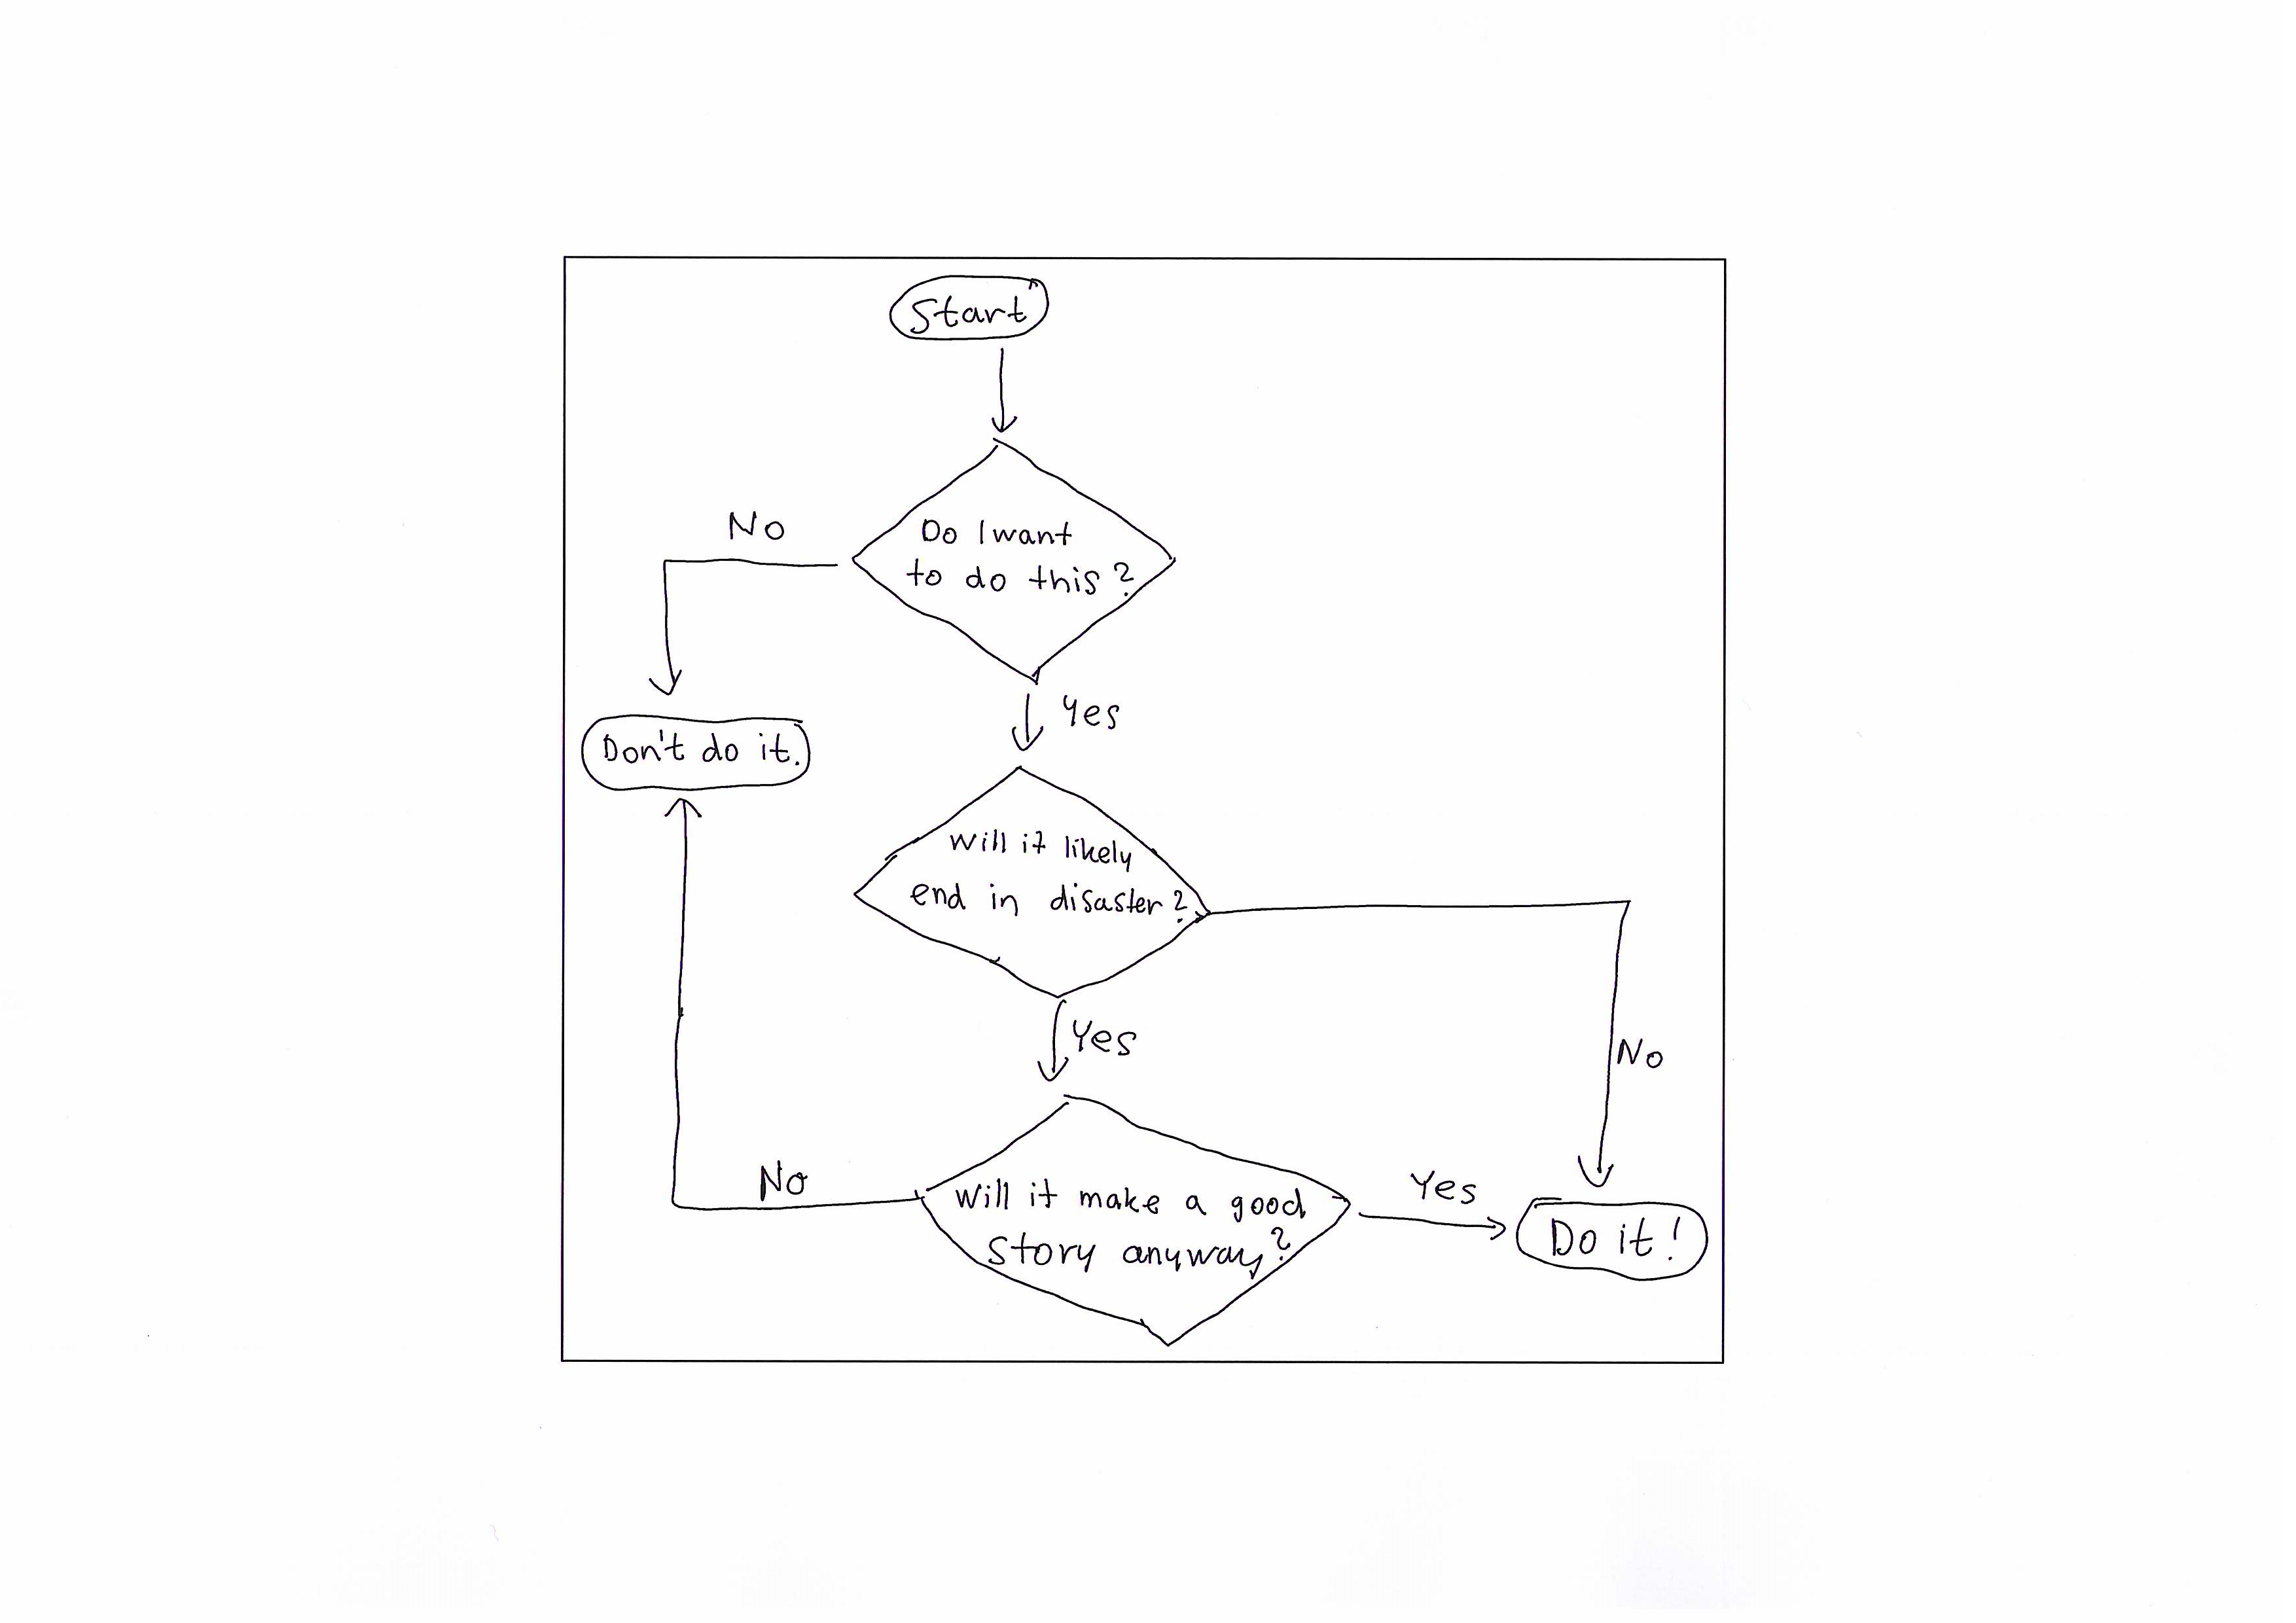 Start
Do I want
to do this?
No
Yes
Don't do it.
Will it likely
end in disaster?
Yes
No
No
Will it make a good
story anyway?
Yes
Do it!